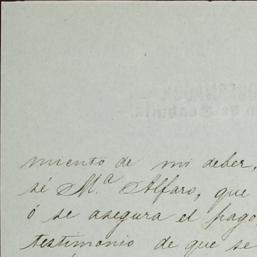 miento de mi deber,
sé M.ª Alfaro, que
ó se asegura el pago
testimonio de que se